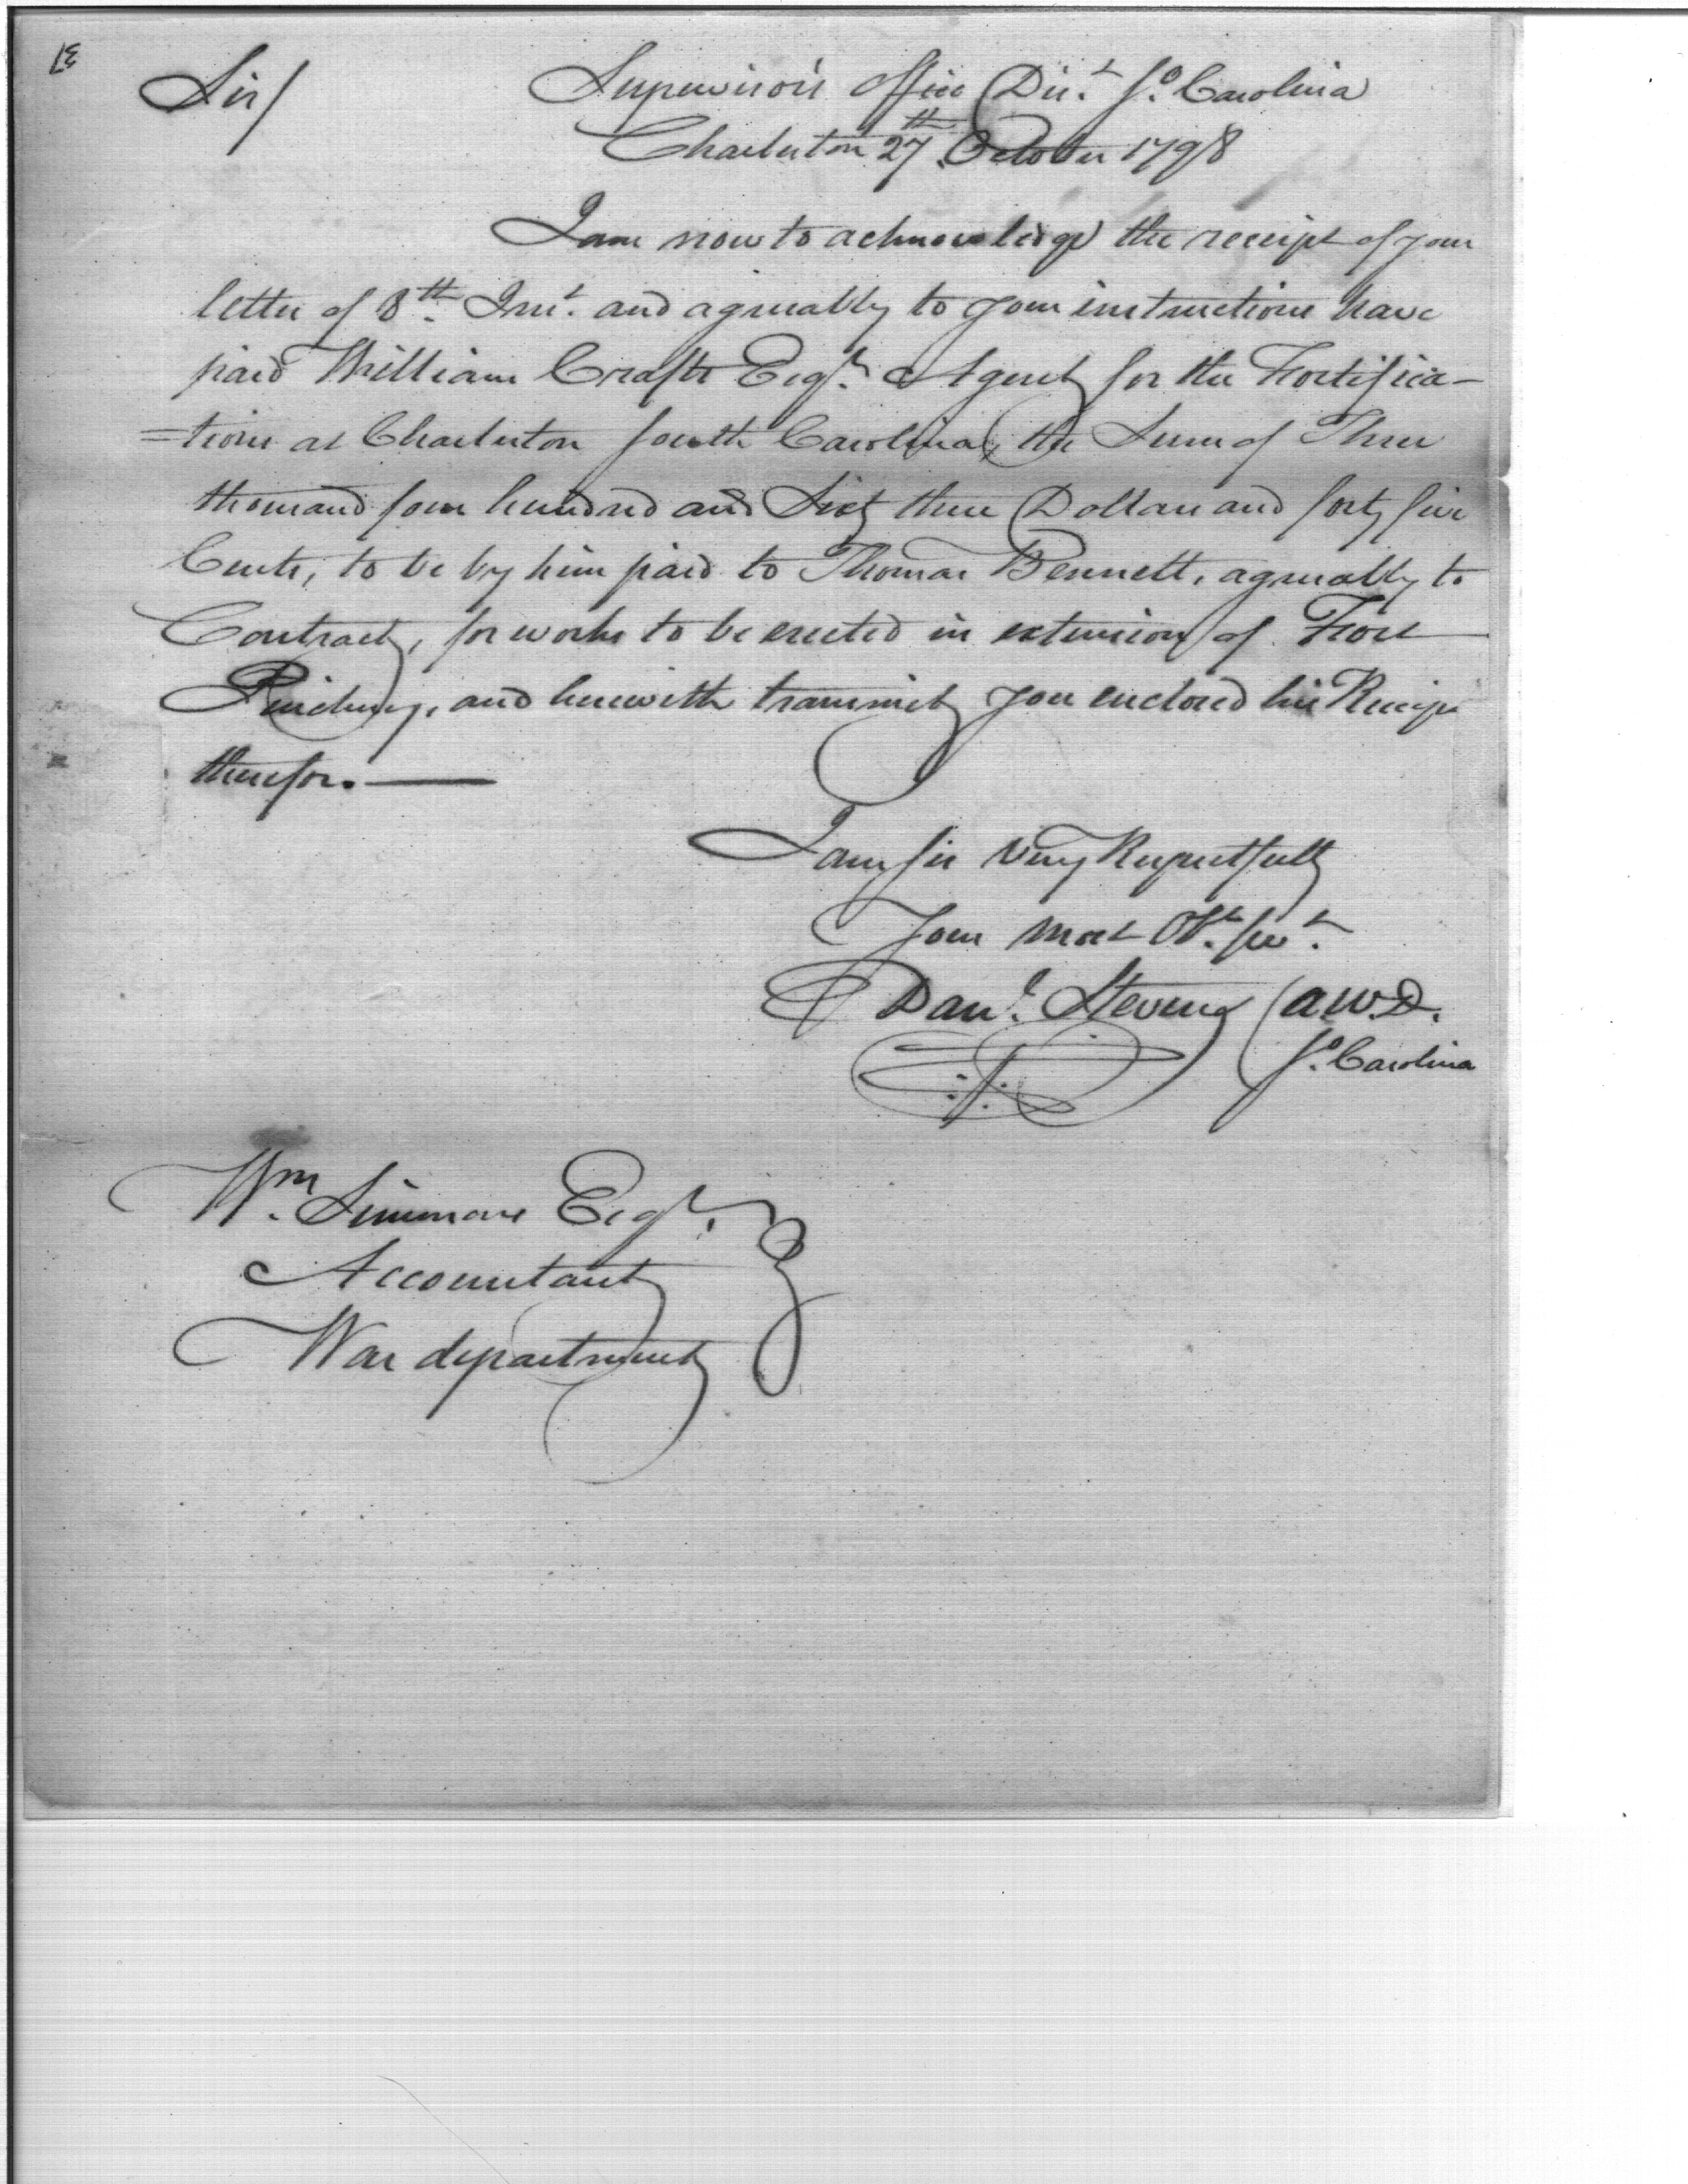 Sir/
Supervisor's Office Dist. So. Carolina
Charleston 27th October 1798
I am now to acknowledge the receipt of your
letter of 8th Inst. and agreeably to your instructions have
paid William Crafts Esqr. Agent for the Fortifica-
=tions at Charleston South Carolina, the Sum of Three
thousand four hundred and Sixty three Dollars and forty five
Cents, to be by him paid to Thomas Bennett, agreeably to
Contract, for works to be erected in extension of Fort
Pinckney, and herewith transmit you enclosed his Receipt
therefor.—
I am Sir Very Respectfully
Your most Obt. Servt.
Danl. Stevens (A.W.D.
So. Carolina
Wm. Simmons Esqr.
Accountant
War department